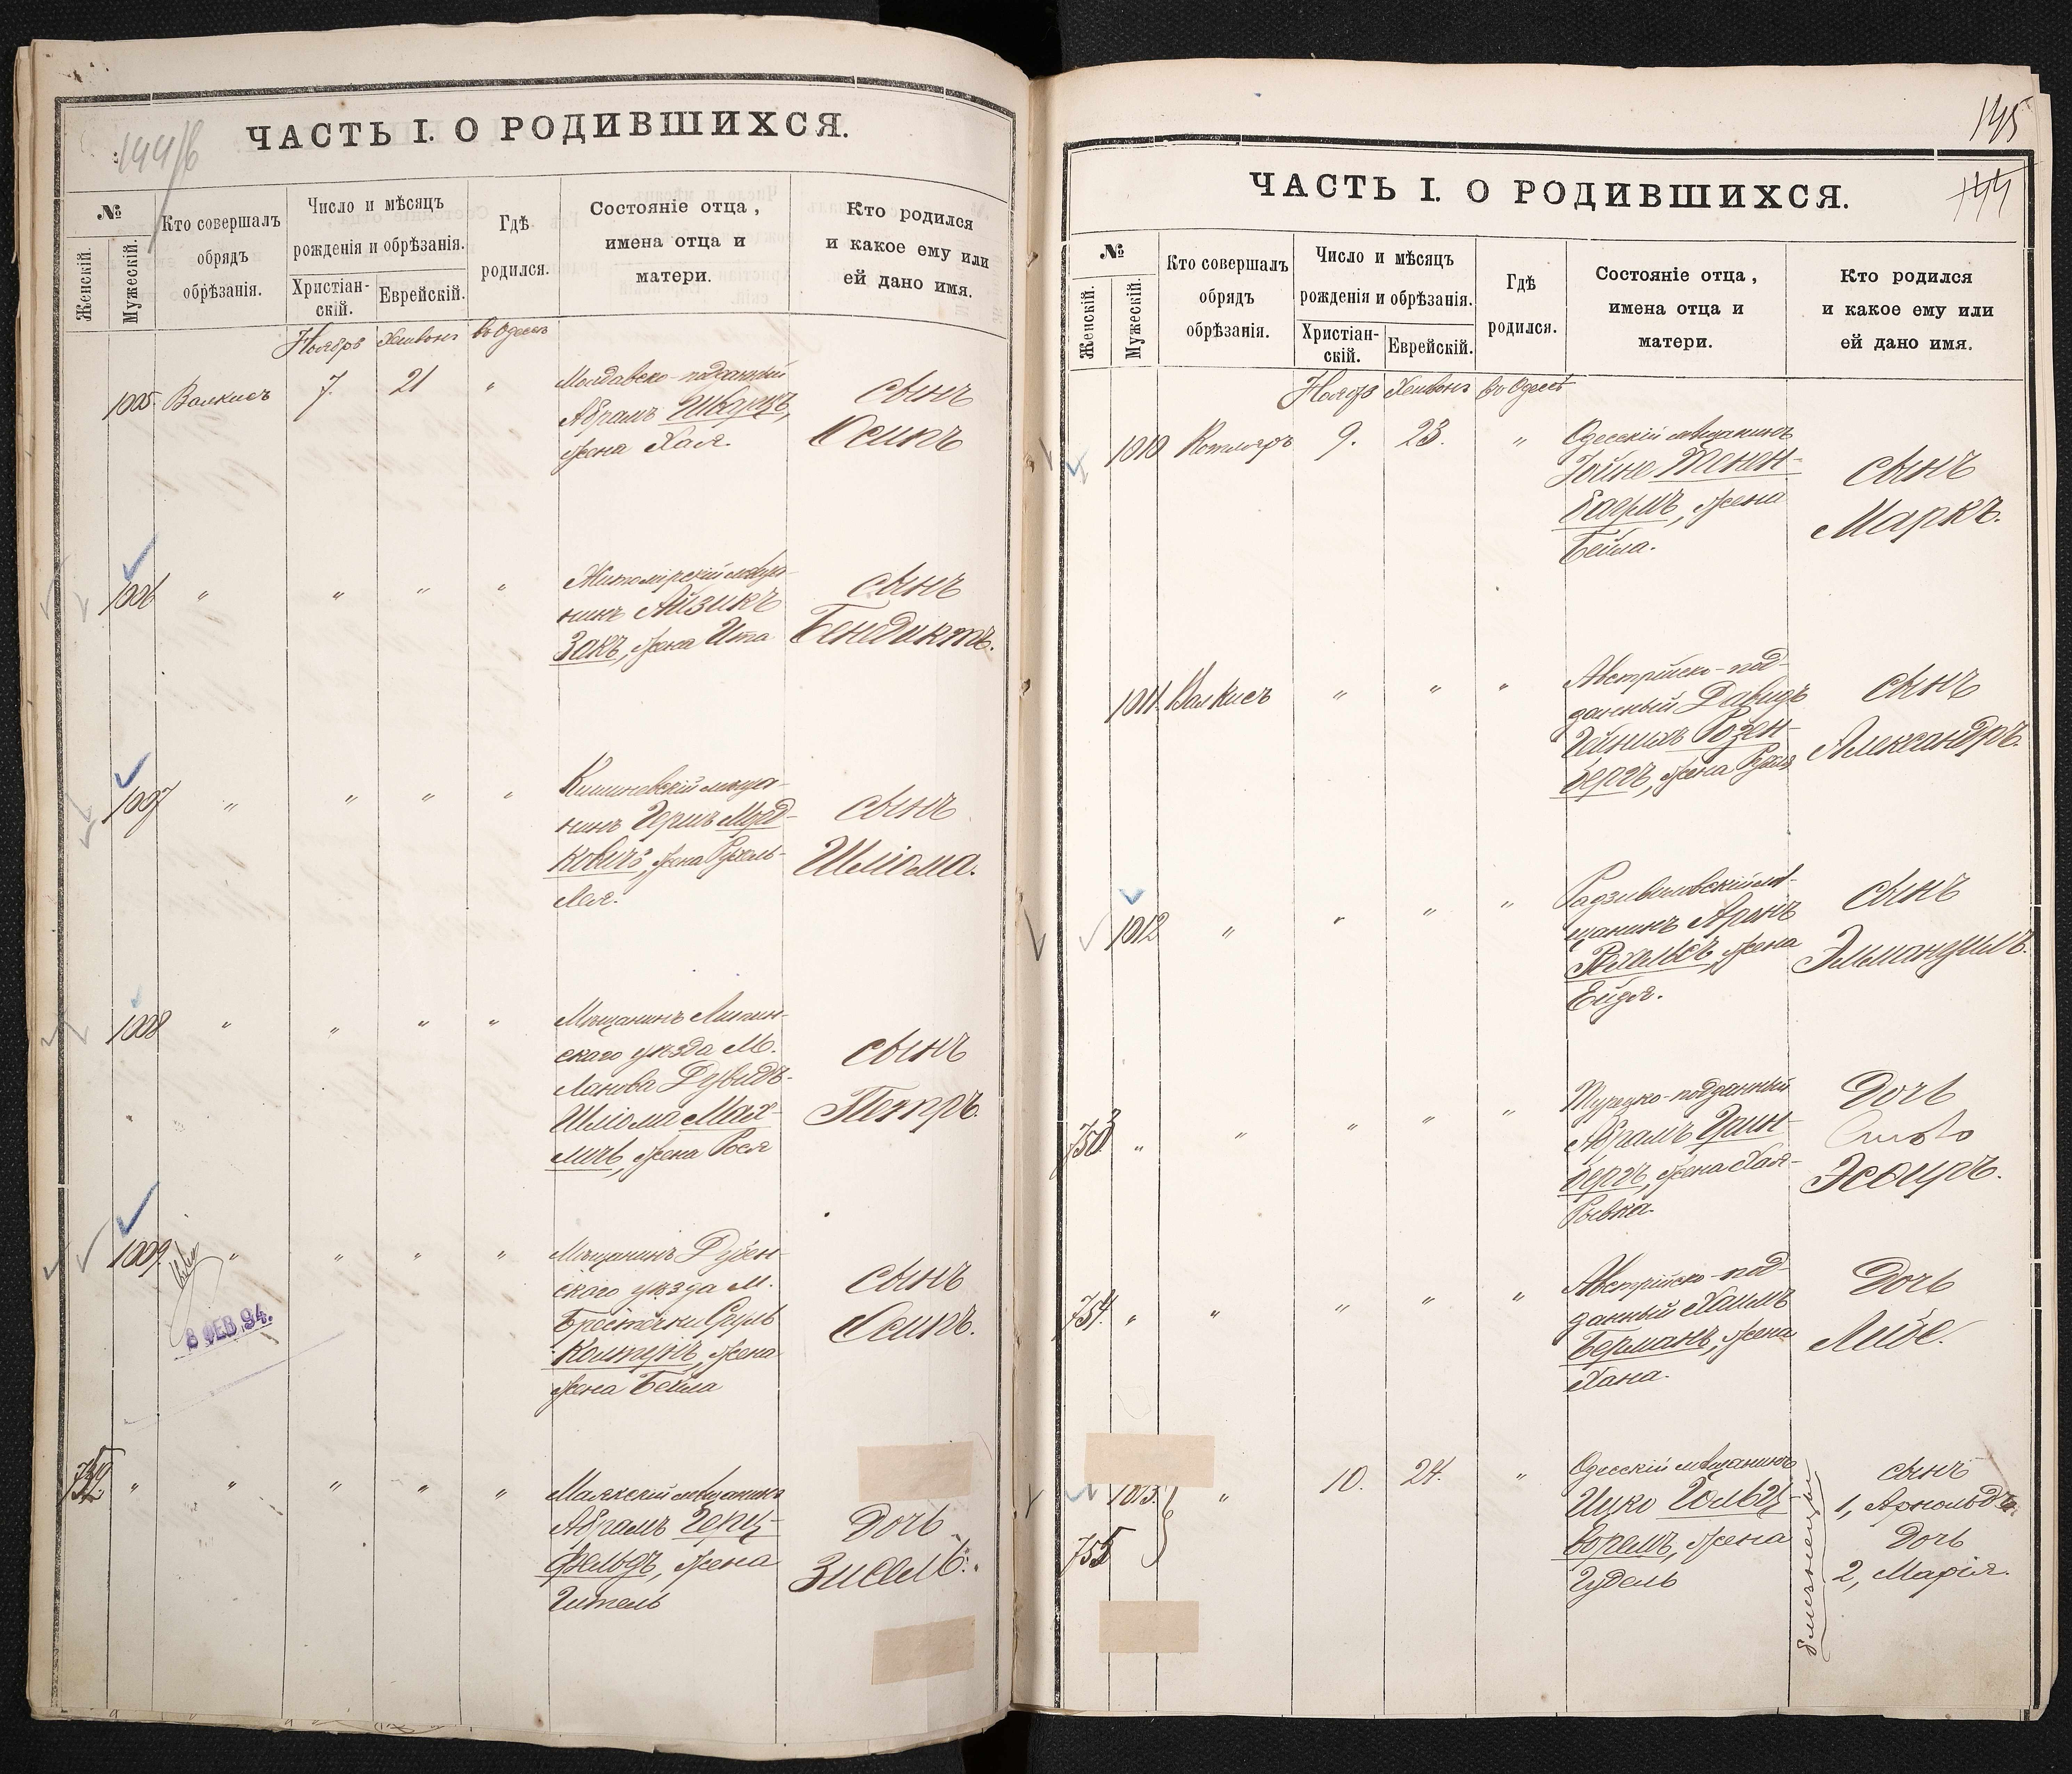 144/б
ЧАСТЬ I. О РОДИВШИХСЯ.
№
Женскій.
Мужескій.
Кто совершалъ
обрядъ
обрѣзанія.
Число и мѣсяцъ
рожденія и обрѣзанія.
Христіан-
скій.
Еврейскій.
Гдѣ
родился.
Состояніе отца,
имена отца и
матери.
Кто родился
и какое ему или
ей дано имя.
Ноябрь Хешвонъ въ Одессѣ
1005. Валкисъ 7. 21 "
Молдавско-подданный
Абрамъ Шварцъ,
жена Хая.
сынъ
Осипъ
1006 " " " "
Житомірскій мѣща-
нинъ Айзикъ
Закъ, жена Ита
сынъ
Бендиктъ.
1007 " " " "
Кишиневскій мѣща-
нинъ Гершъ Мрод-
ковичъ, жена Рухель-
Лея.
сынъ
Шліома.
1008 " " " "
Мѣщанинъ Липин-
скаго уѣзда М.
Ланова Дувидъ-
Шліома Мах-
личъ, жена Рося
сынъ
Петръ.
1009. " " " "
8 ФЕВ. 94.
Мѣщанинъ Дубен-
скаго уѣзда М.
Берестечки Сруль
жена
жена Бейла
сынъ
Осипъ.
752. " " " " "
Маякскій мѣщанинъ
Абрамъ Герц-
фельдъ, жена
Гитель
Дочь
Зисель.
145
144
ЧАСТЬ I. О РОДИВШИХСЯ.
№
Женскій.
Мужескій.
Кто совершалъ
обрядъ
обрѣзанія.
Число и мѣсяцъ
рожденія и обрѣзанія.
Христіан-
скій.
Еврейскій.
Гдѣ
родился.
Состояніе отца,
имена отца и
матери.
Кто родился
и какое ему или
ей дано имя.
Ноябрь Хешвонъ въ Одессѣ
1010 Котляръ 9. 23. "
Одесскій мѣщанинъ
Іойна Тенен-
баумъ, жена
Бейла.
сынъ
Маркъ.
1011. Валкисъ " " "
Австрійско-под-
данный Давидъ
Гейнихъ Розен-
бергъ, жена Рухля
сынъ
Александръ.
1012 " " " "
Радзивиловскій мѣ-
щанинъ Аронъ
жена
Ейдя.
сынъ
Эммануилъ.
753 " " " " "
Турецко-подданный
Абрамъ Грин-
бергъ, жена Хая-
Рывка.
Дочь
Эсѳирь.
754. " " " " "
Австрійско-под-
данный Хаимъ
Берманъ, жена
Хана.
Дочь
Либе.
1013. " 10. 24. "
755
Одесскій мѣщанинъ
Ицко Гольц-
воремъ, жена
Гудель
близнецы
сынъ
1, Арнольдъ.
Дочь
2, Марія.